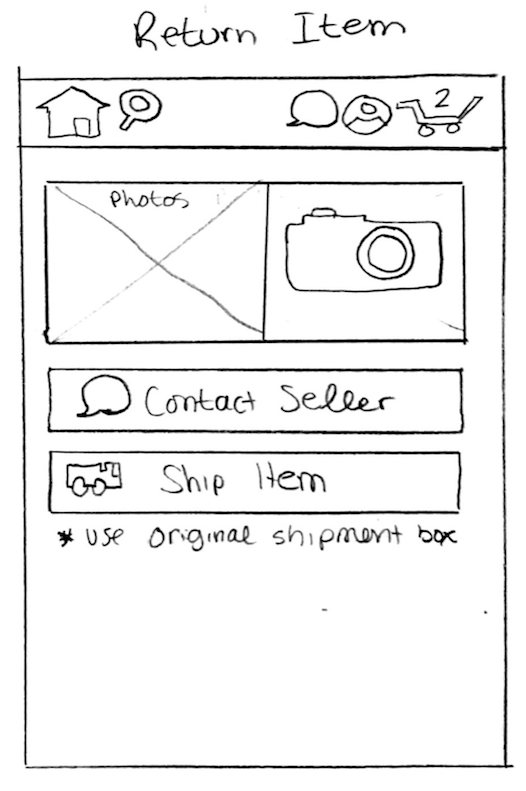 Return Item
2
Photos
Contact Seller
Ship Item
* use original shipment box